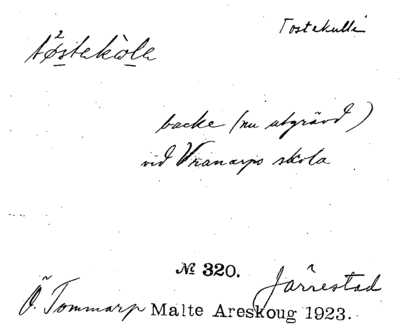 Tostekulle
tø²stekòla
backe (nu utgrävd)
vid Vranarps skola
№ 320.
Järrestad
Ö. Tommarp Malte Areskoug 1923.